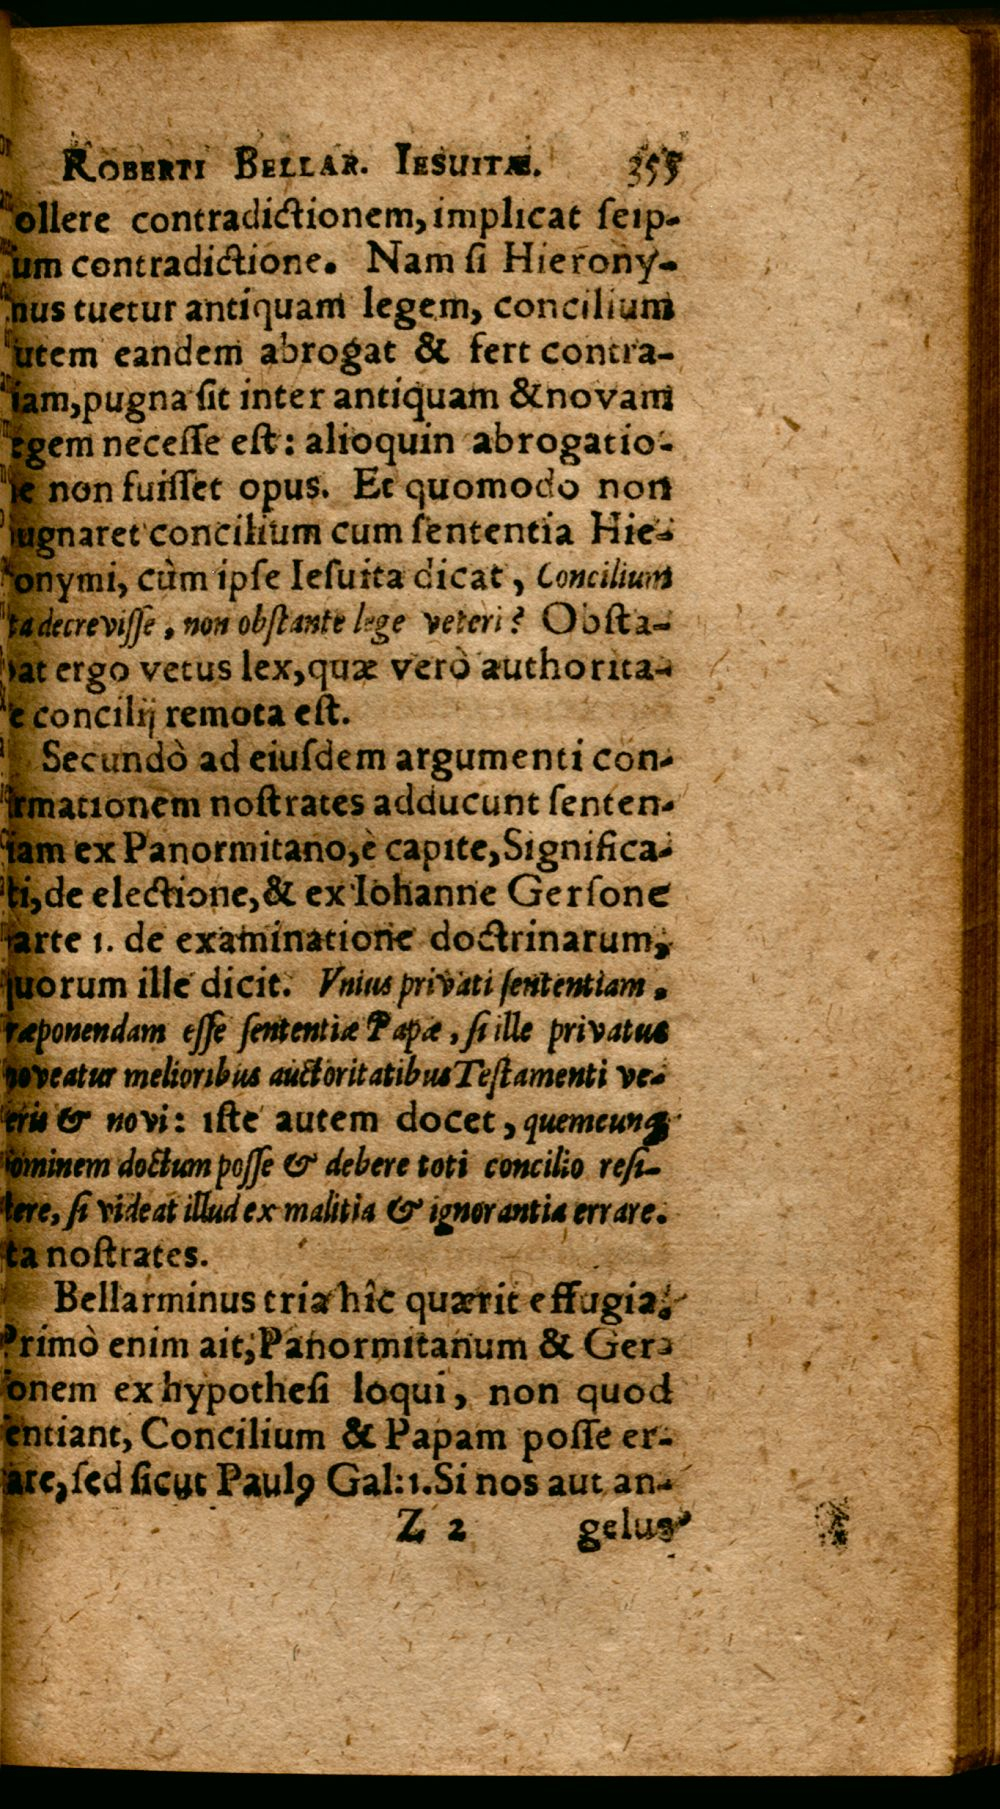 ROBERTI BELLAR. IESUITÆ. 355
ollere contradictionem, implicat ſeip-
um contradictione. Nam ſi Hierony-
nus tuetur antiquam legem, concilium
utem eandem abrogat & fert contra-
iam, pugna ſit inter antiquam & novam
egem neceſſe eſt: alioquin abrogatio-
e non fuiſſet opus. Et quomodo non
ugnaret concilium cum ſententia Hie-
onymi, cùm ipſe Ieſuita dicat, Concilium
ta decreviſſe, non obſtante lege veteri? Obſta-
at ergo vetus lex, quæ verò authorita-
e concilij remota eſt.
Secundò ad eiuſdem argumenti con-
rmationem noſtrates adducunt ſenten-
iam ex Panormitano, è capite, Significa-
ti, de electione, & ex Iohanne Gerſone
arte 1. de examinatione doctrinarum,
uorum ille dicit. Vnius privati ſententiam
ræponendam eſſe ſententiæ Papæ, ſi ille privatus
noveatur melioribus auctoritatibus Teſtamenti ve-
eris & novi: iſte autem docet, quemcunq;
ominem doctum poſſe & debere toti concilio reſi-
tere, ſi videat illud ex malitia & ignorantia errare.
ta noſtrates.
Bellarminus tria hîc quærit effugia.
Primò enim ait, Panormitanum & Ger-
onem ex hypotheſi loqui, non quod
entiant, Concilium & Papam poſſe er-
are, ſed ſicut Paulꝰ Gal: 1. Si nos aut an-
Z 2 gelus